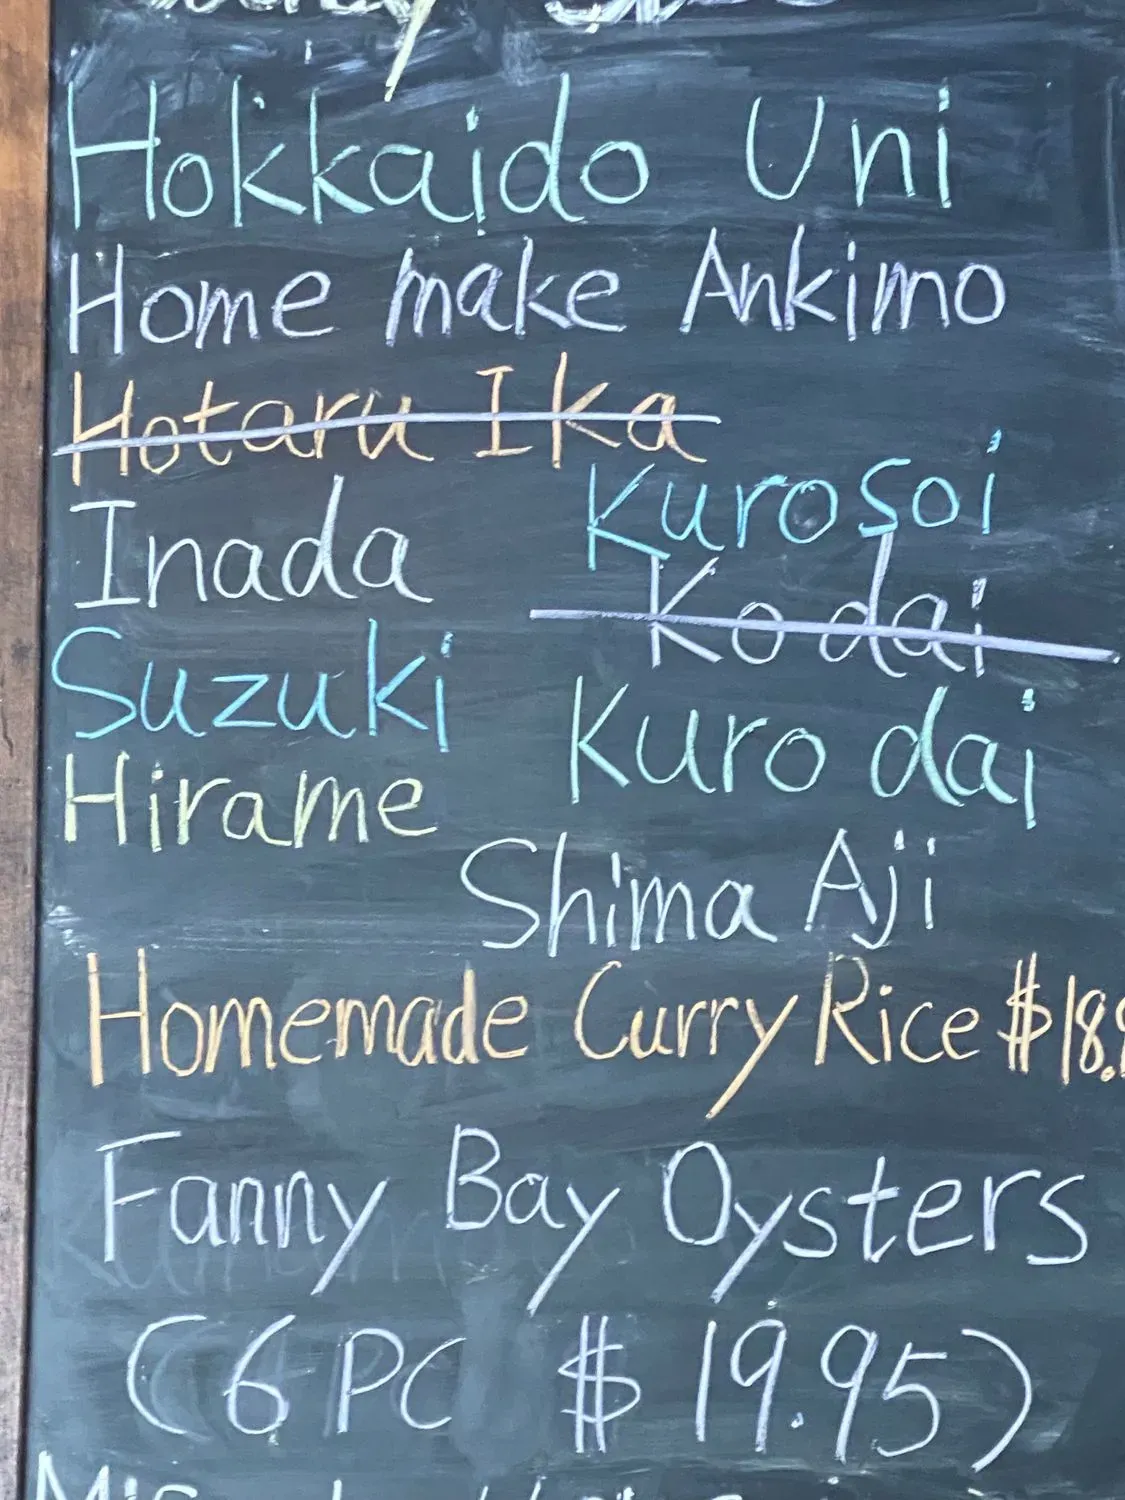 Hokkaido Uni
Home make Ankimo
Hotaru Ika
Kurosoi
Inada
Kodai
Suzuki
Kuro dai
Hirame
Shima Aji
Homemade Curry Rice $18.
Fanny Bay Oysters
(6 PC $19.95)